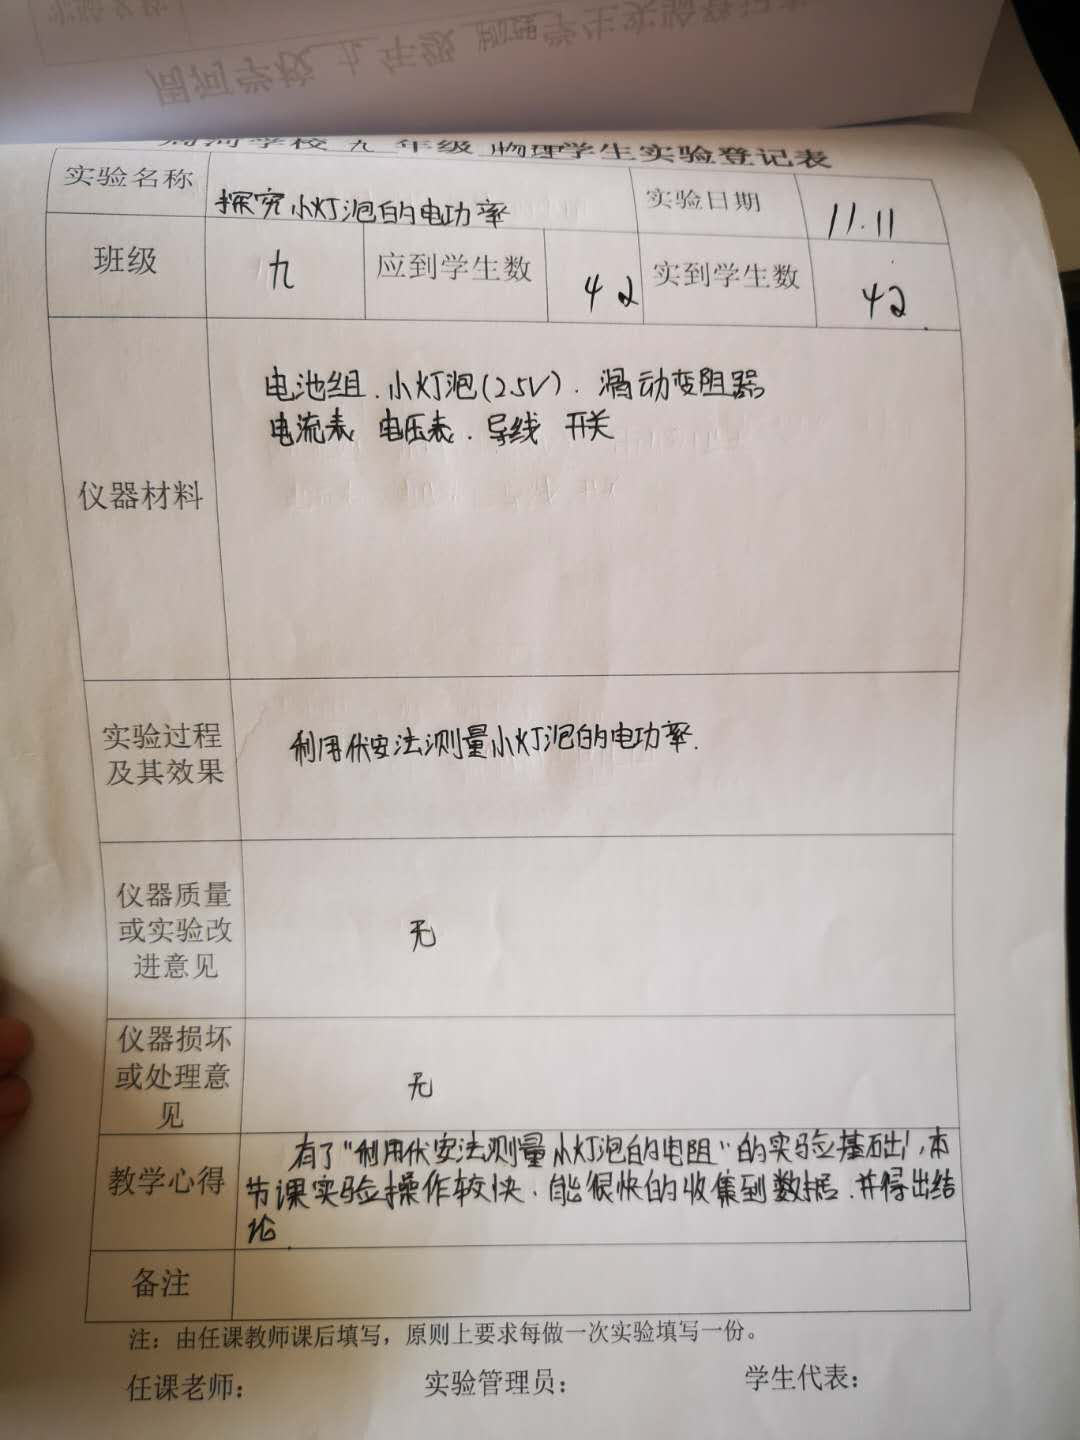 周河学校 九 年级 物理学生实验登记表
周河学校 九 年级 物理学生实验登记表
实验名称 探究小灯泡的电功率 实验日期 11.11
班级 九 应到学生数 42 实到学生数 42
电池组.小灯泡(2.5V).滑动变阻器
电流表 电压表.导线 开关
仪器材料
实验过程
及其效果
利用伏安法测量小灯泡的电功率.
仪器质量
或实验改
进意见
无
仪器损坏
或处理意
见
无
教学心得
有了"利用伏安法测量小灯泡的电阻"的实验基础,本
节课实验操作较快.能很快的收集到数据.并得出结
论.
备注
注：由任课教师课后填写，原则上要求每做一次实验填写一份。
任课老师： 实验管理员： 学生代表：